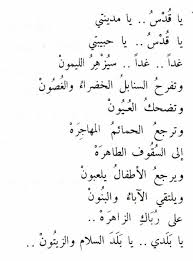 يا قُدْسُ .. يا مدينتي
يا قُدْسُ .. يا حبيبتي
غداً .. غداً .. سيُزْهِرُ الليمونْ
وتفرحُ السنابلُ الخضراءُ والغُصُونْ
وتضحكُ العُيُونْ
وترجعُ الحمائمُ المهاجِرَهْ
إلى السُقُوفِ الطاهرَهْ
ويرجعُ الأطفالُ يلعبونْ
ويلتقي الآباءُ والبنُونْ
على رُبَاكِ الزاهرَهْ ..
يا بَلَدي .. يا بَلَدَ السلام والزيتُونْ ..